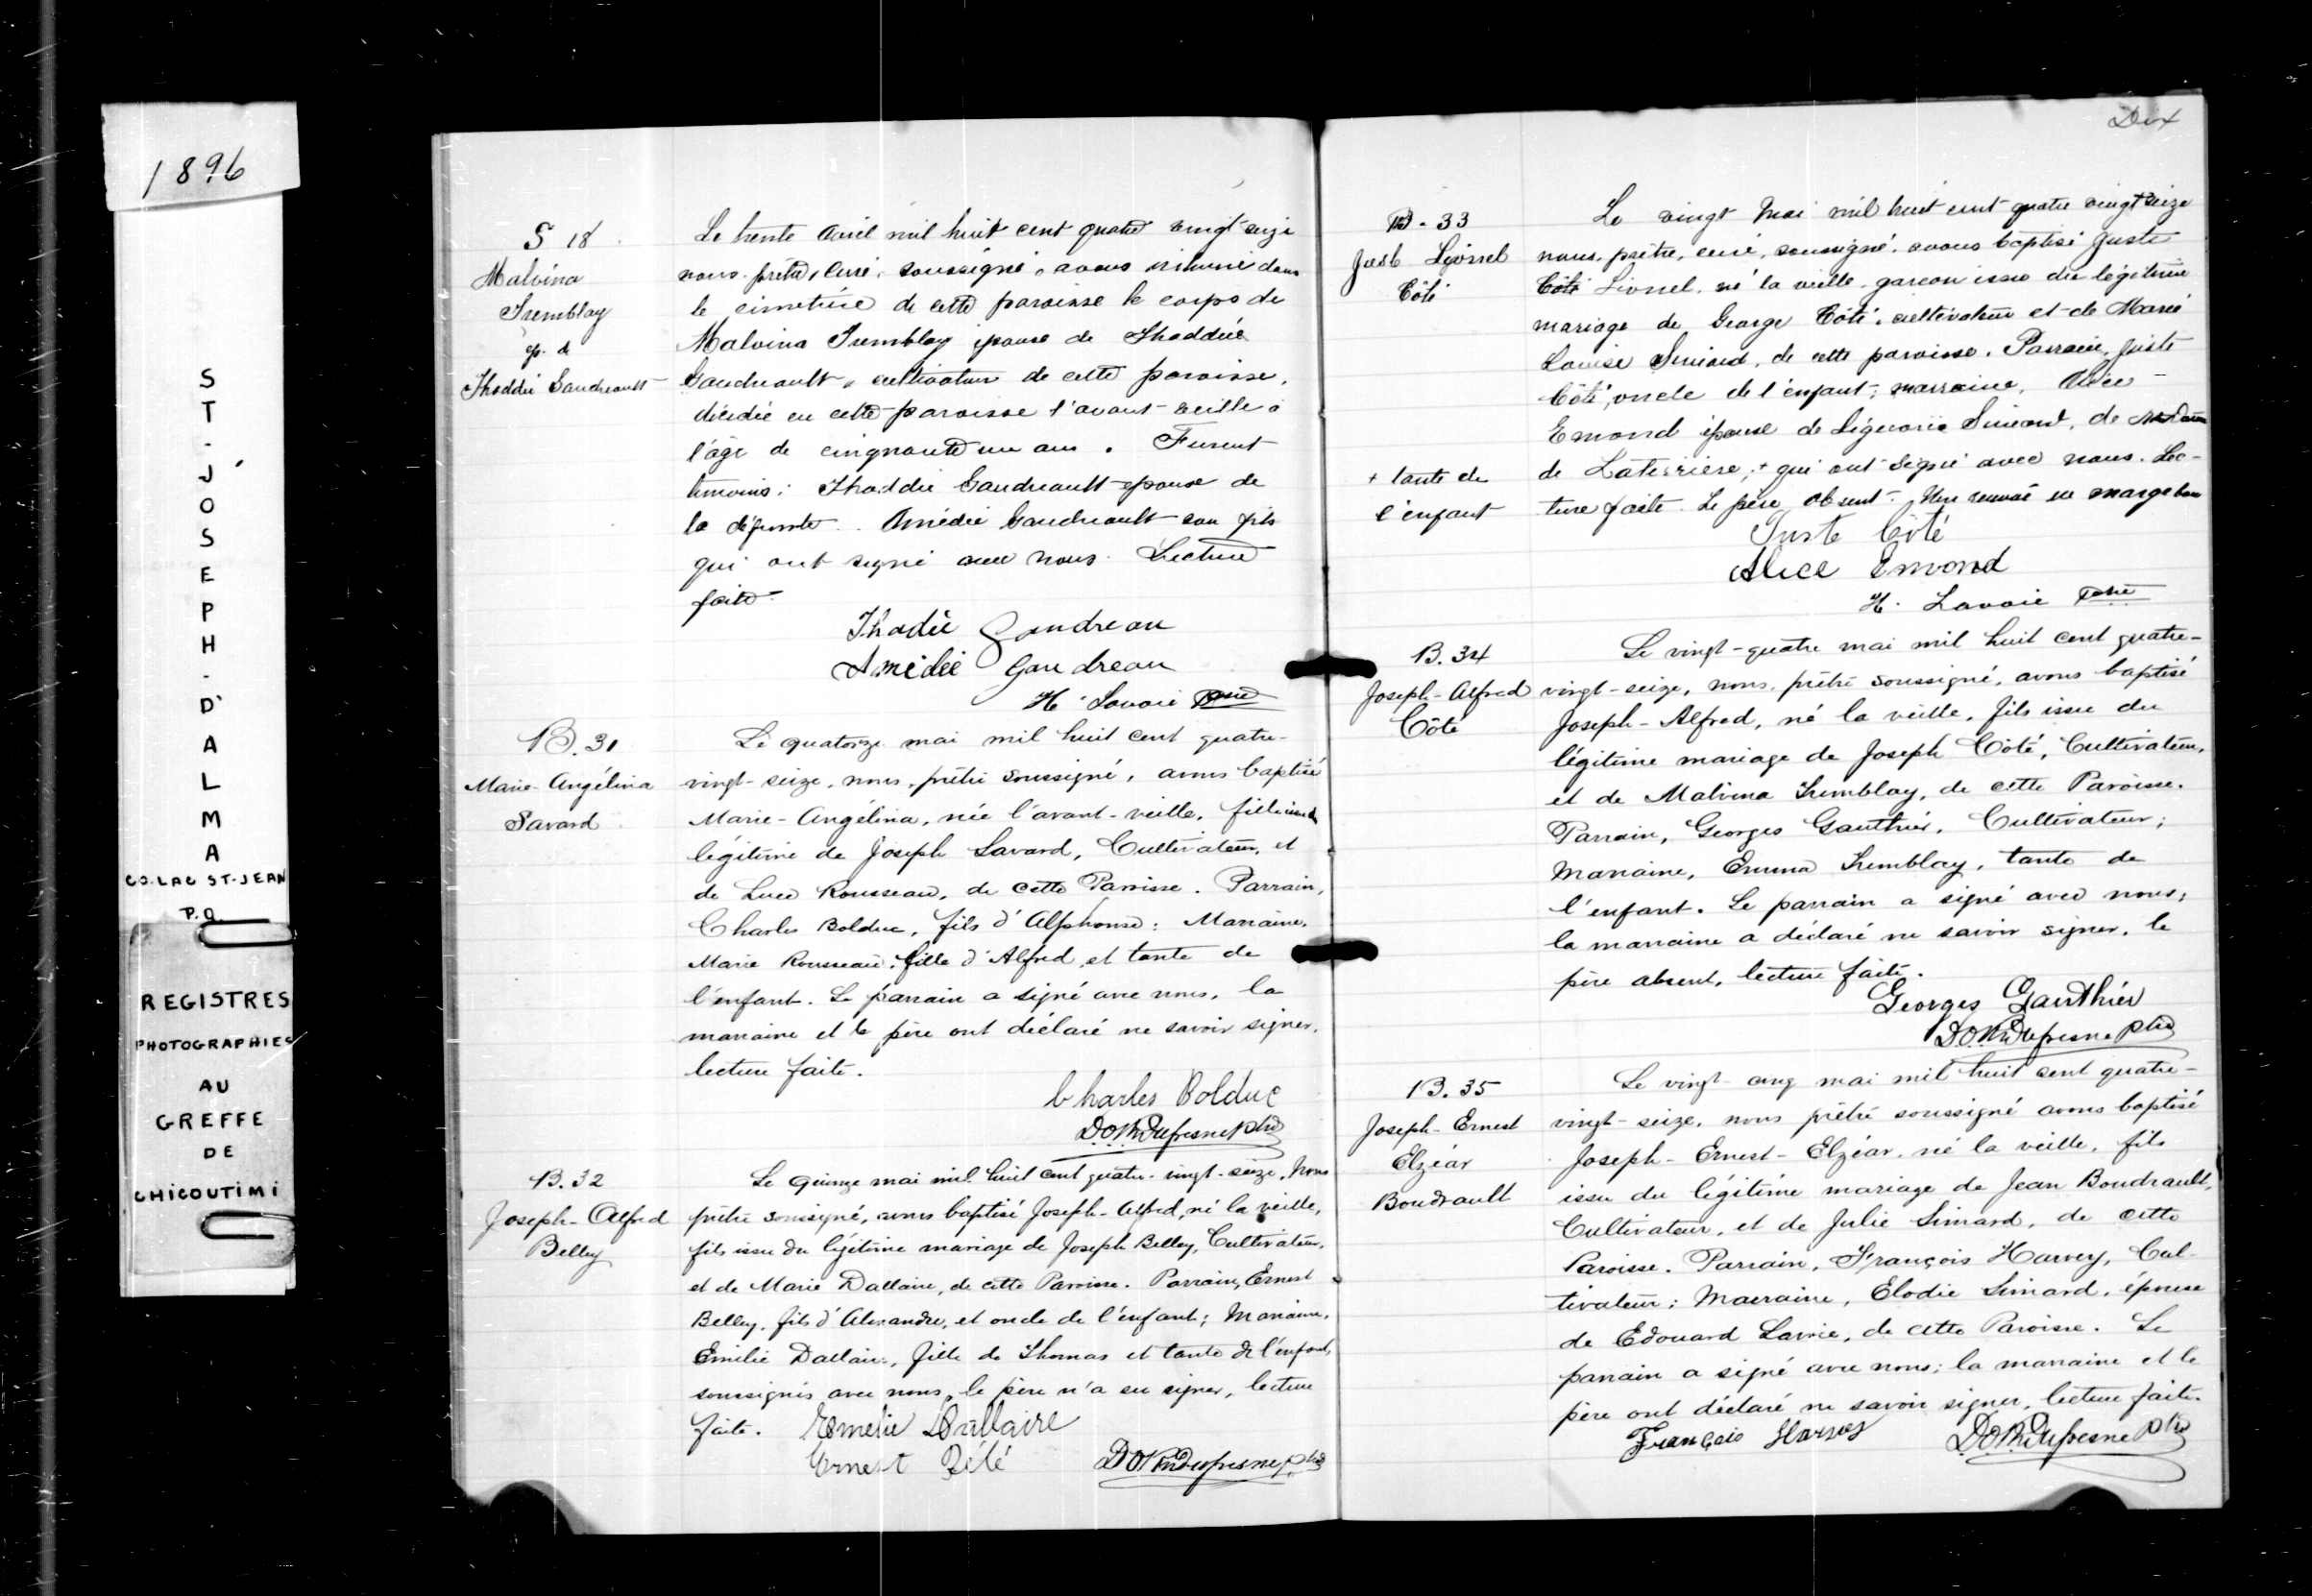 1896
ST-JOSEPH-D'ALMA
CO. LAC ST-JEAN
P.Q.
REGISTRES
PHOTOGRAPHIES
AU
GREFFE
DE
CHICOUTIMI
S 18
Malvina
Tremblay
ép. de
Thaddée Gaudreault
Le trente Avril mil huit cent quatre vingt seize
nous, prêtre, curé, soussigné, avons inhumé dans
le cimetière de cette paroisse le corps de
Malvina Tremblay épouse de Thaddée
Gaudreault, cultivateur de cette paroisse,
décédée en cette paroisse l'avant-veille à
l'âge de cinquante un ans. Furent
témoins: Thaddée Gaudreault époux de
la défunte. Amédée Gaudreault son fils
qui ont signé avec nous. Lecture
faite.
Thadée Gaudreau
Amédée Gaudreau
H. Lavoie Ptre
B. 31
Marie-Angélina
Savard
Le quatorze mai mil huit cent quatre-
vingt-seize, nous, prêtre soussigné, avons baptisé
Marie-Angélina, née l'avant-veille, fille issue du
légitime de Joseph Savard, Cultivateur, et
de Luce Rousseau, de cette Paroisse. Parrain,
Charles Bolduc, fils d'Alphonse; Marraine,
Marie Rousseau, fille d'Alfred, et tante de
l'enfant. Le parrain a signé avec nous, la
marraine et le père ont déclaré ne savoir signer,
lecture faite.
Charles Bolduc
D.O.R. Dufresne Ptre
B. 32
Joseph-Alfred
Belley
Le quinze mai mil huit cent quatre-vingt-seize, Nous
prêtre soussigné, avons baptisé Joseph-Alfred, né la veille,
fils issu du légitime mariage de Joseph Belley, Cultivateur,
et de Marie Dallaire, de cette Paroisse. Parrain, Ernest
Belley, fils d'Alexandre, et oncle de l'enfant; Marraine,
Emilie Dallaire, fille de Thomas et tante de l'enfant,
soussignés avec nous, le père n'a su signer, lecture
faite. Emelie Dallaire
Ernest Bélé D.O.R. Dufresne Ptre
Dix
B. 33
Just Lionnel
Côté
+ tante de
l'enfant
Le vingt Mai mil huit cent quatre vingt seize
nous, prêtre, curé, soussigné, avons baptisé Juste
Côté Lionnel, né la veille, garçon issu du légitime
mariage de George Côté, cultivateur et de Marie
Louise Simard, de cette paroisse. Parrain, Juste
Côté, oncle de l'enfant; marraine, Alice
Emond épouse de Liguorie Simard, de
de Laterrière,+ qui ont signé avec nous. Lec-
ture faite. Le père absent. Un renvoi en marge bon
Juste Côté
Alice Emond
H. Lavoie Ptre
B. 34
Joseph-Alfred
Côté
Le vingt-quatre mai mil huit cent quatre-
vingt-seize, nous, prêtre soussigné, avons baptisé
Joseph-Alfred, né la veille, fils issu du
légitime mariage de Joseph Côté, Cultivateur,
et de Malvina Tremblay, de cette Paroisse.
Parrain, Georges Gauthier, Cultivateur;
Marraine, Emma Tremblay, tante de
l'enfant. Le parrain a signé avec nous,
la marraine a déclaré ne savoir signer, le
père absent, lecture faite.
Georges Gauthier
D.O.R. Dufresne Ptre
B. 35
Joseph-Ernest
Elzéar
Boudrault
Le vingt-cinq mai mil huit cent quatre-
vingt-seize, nous prêtre soussigné avons baptisé
Joseph-Ernest-Elzéar, né la veille, fils
issu du légitime mariage de Jean Boudrault,
Cultivateur, et de Julie Simard, de cette
Paroisse. Parrain, François Harvey, Cul-
tivateur; Marraine, Elodie Simard, épouse
de Edouard Lavoie, de cette Paroisse. Le
parrain a signé avec nous; la marraine et le
père ont déclaré ne savoir signer, lecture faite.
François Harvey D.O.R. Dufresne Ptre